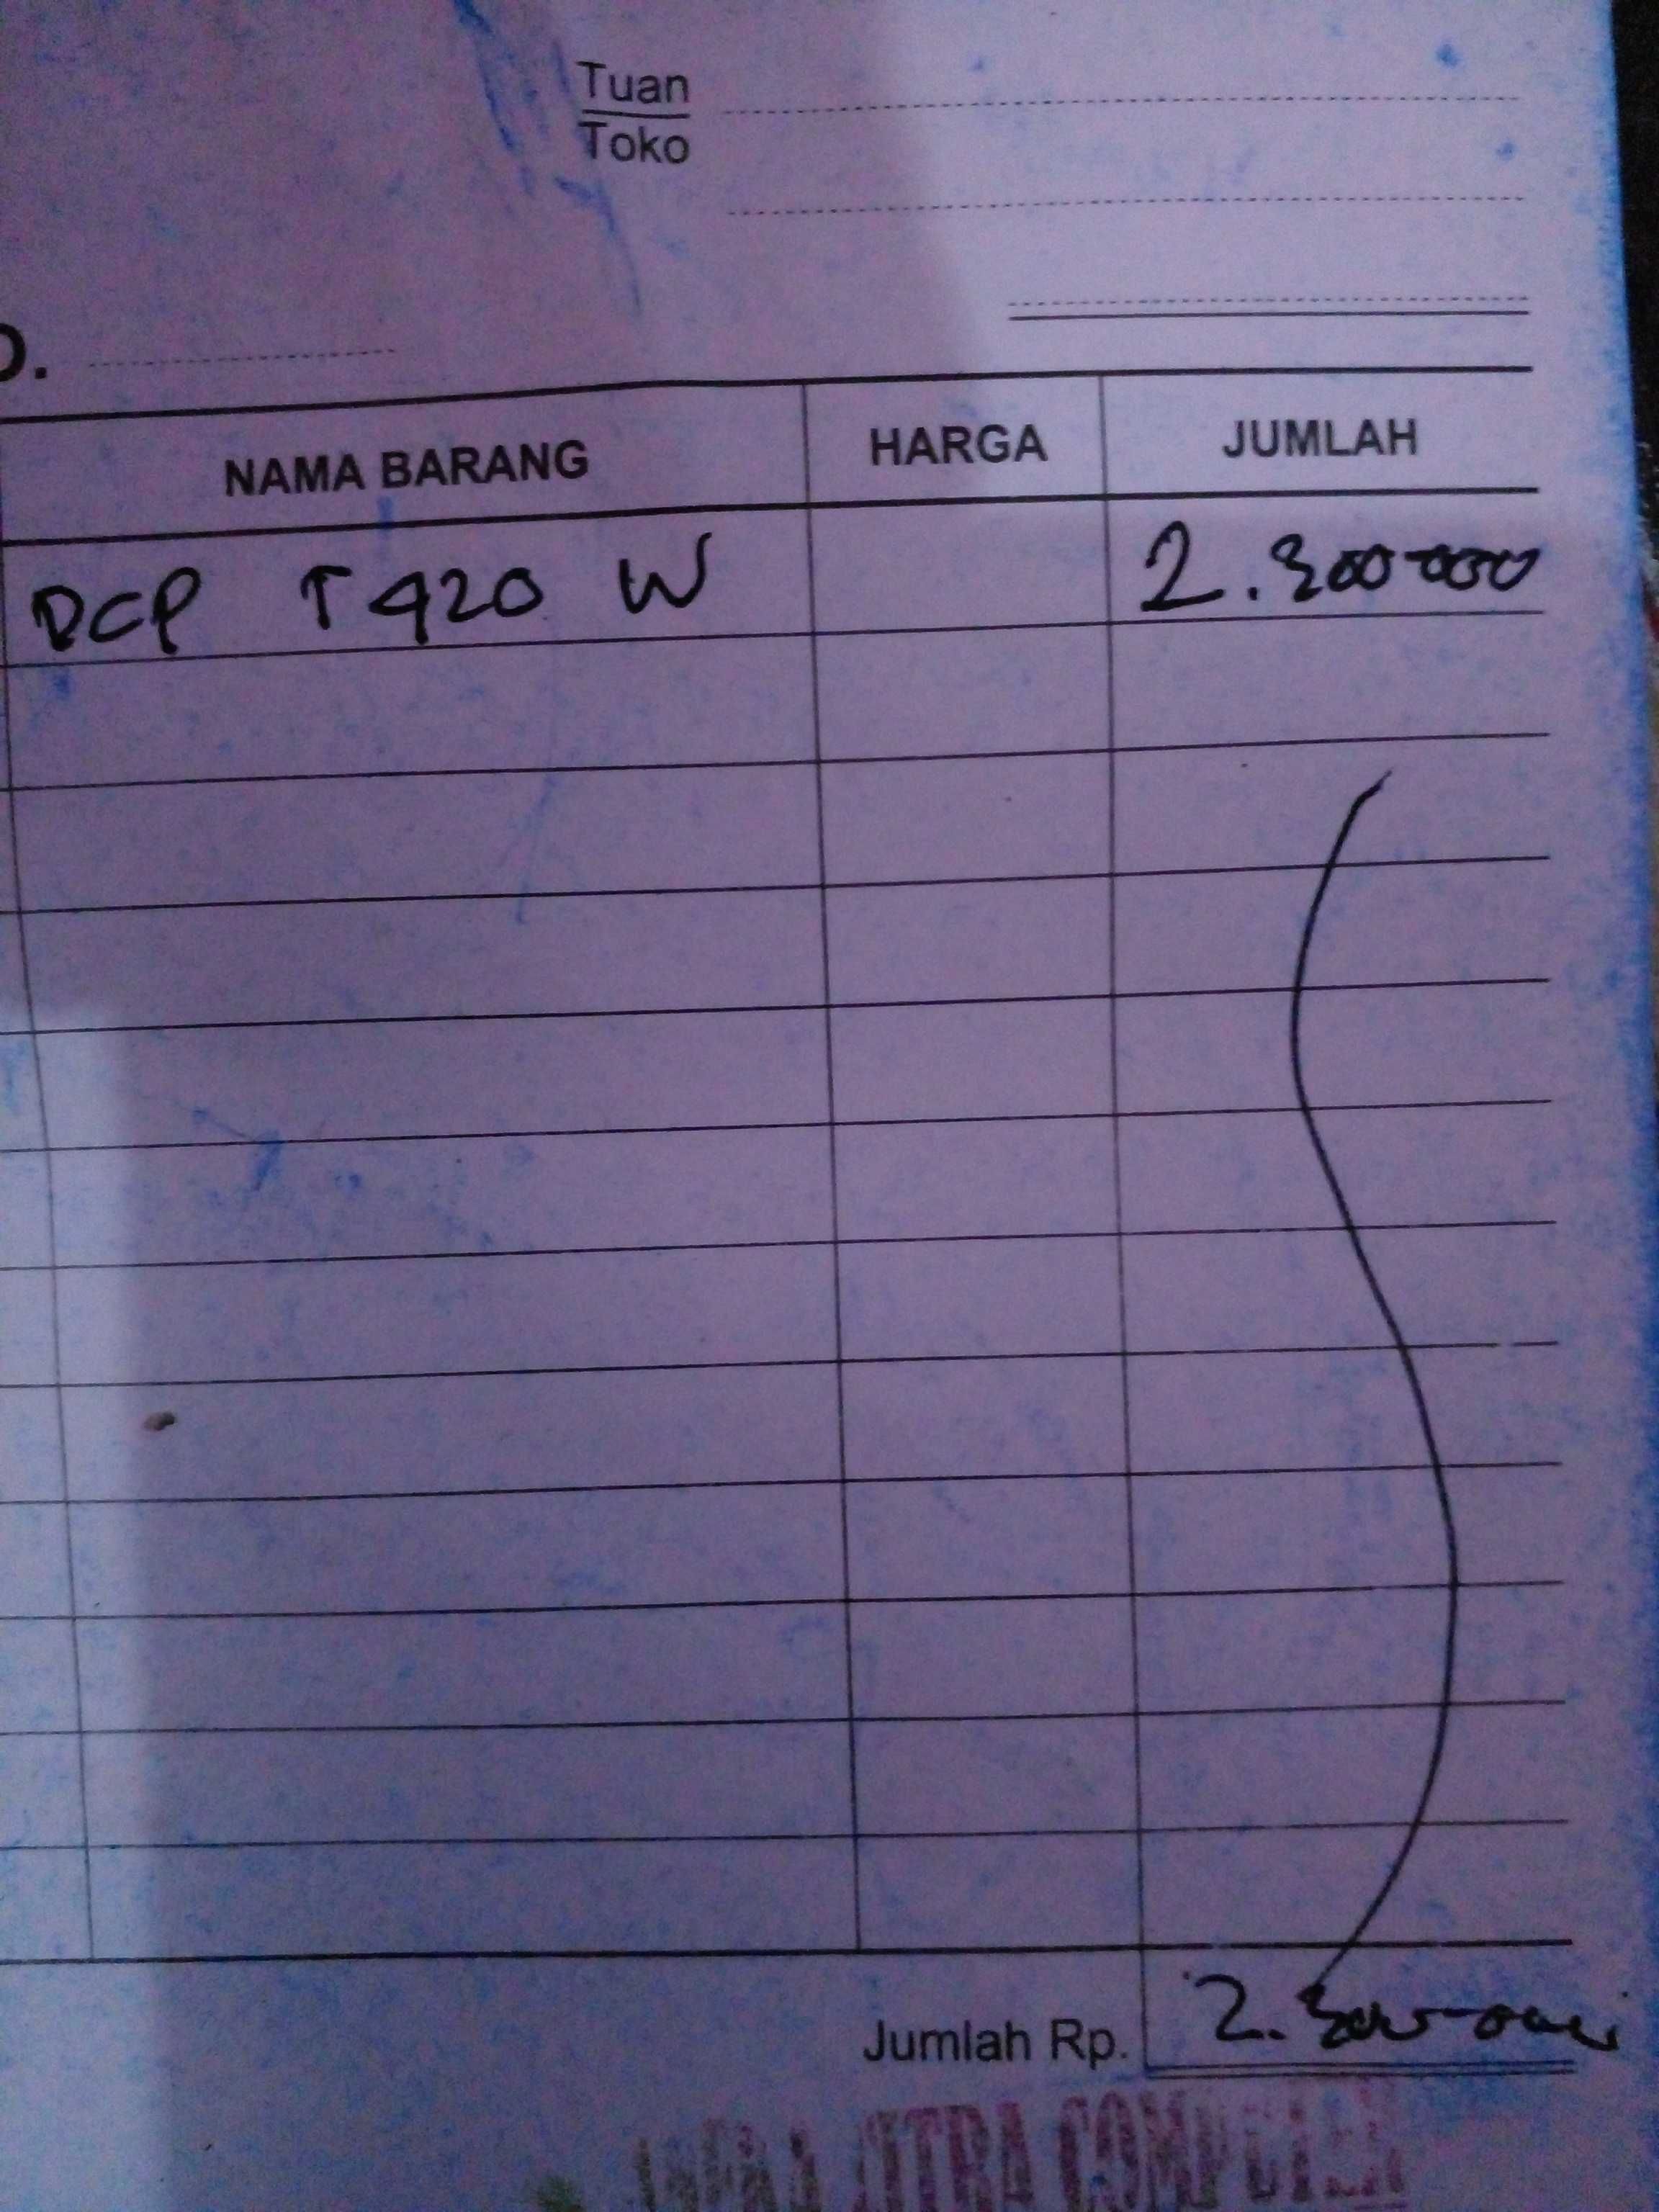 Tuan
Toko
O.
NAMA BARANG HARGA JUMLAH
DCP T420 W 2.300.000
Jumlah Rp. 2.300.000